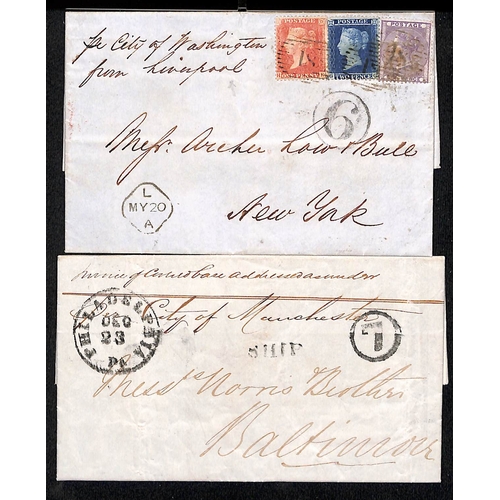 pr City of Washington
from Liverpool
POSTAGE
ONE PENNY
TWO PENCE
POSTAGE
6
Messrs Archer Low & Bull
New York
L
MY 20
A
City of Manchester
PHILADELPHIA
DEC
23
Pa
SHIP
7
Messrs Norris Brothers
Baltimore